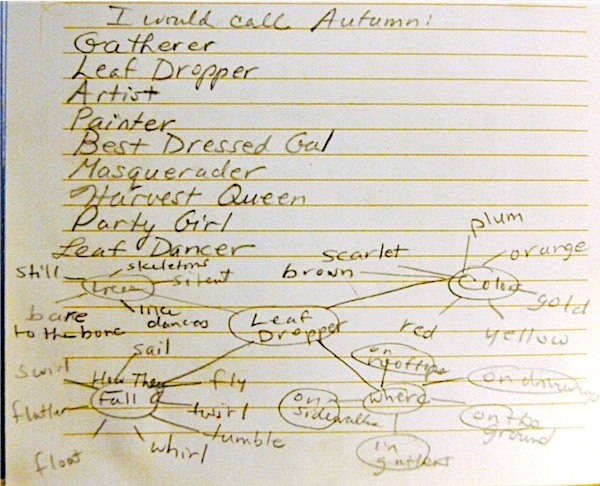 I would call Autumn:
Gatherer
Leaf Dropper
Artist
Painter
Best Dressed Gal
Masquerader
Harvest Queen
Party Girl
Leaf Dancer
plum
scarlet
orange
skeletons
still
silent
brown
Trees
Color
gold
bare
to the bone
line
dances
Leaf
Dropper
red
yellow
sail
on
rooftops
swirl
How They
Fall
fly
on driveways
flutter
twirl
on
sidewalks
where
on the
ground
tumble
float
whirl
in
gutters